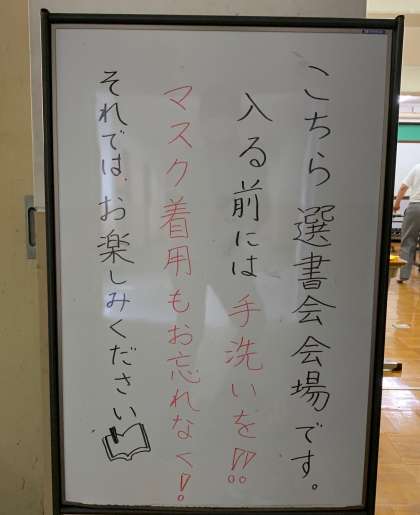 こちら選書会会場です。
入る前には手洗いを!!
マスク着用もお忘れなく!
それでは、お楽しみください